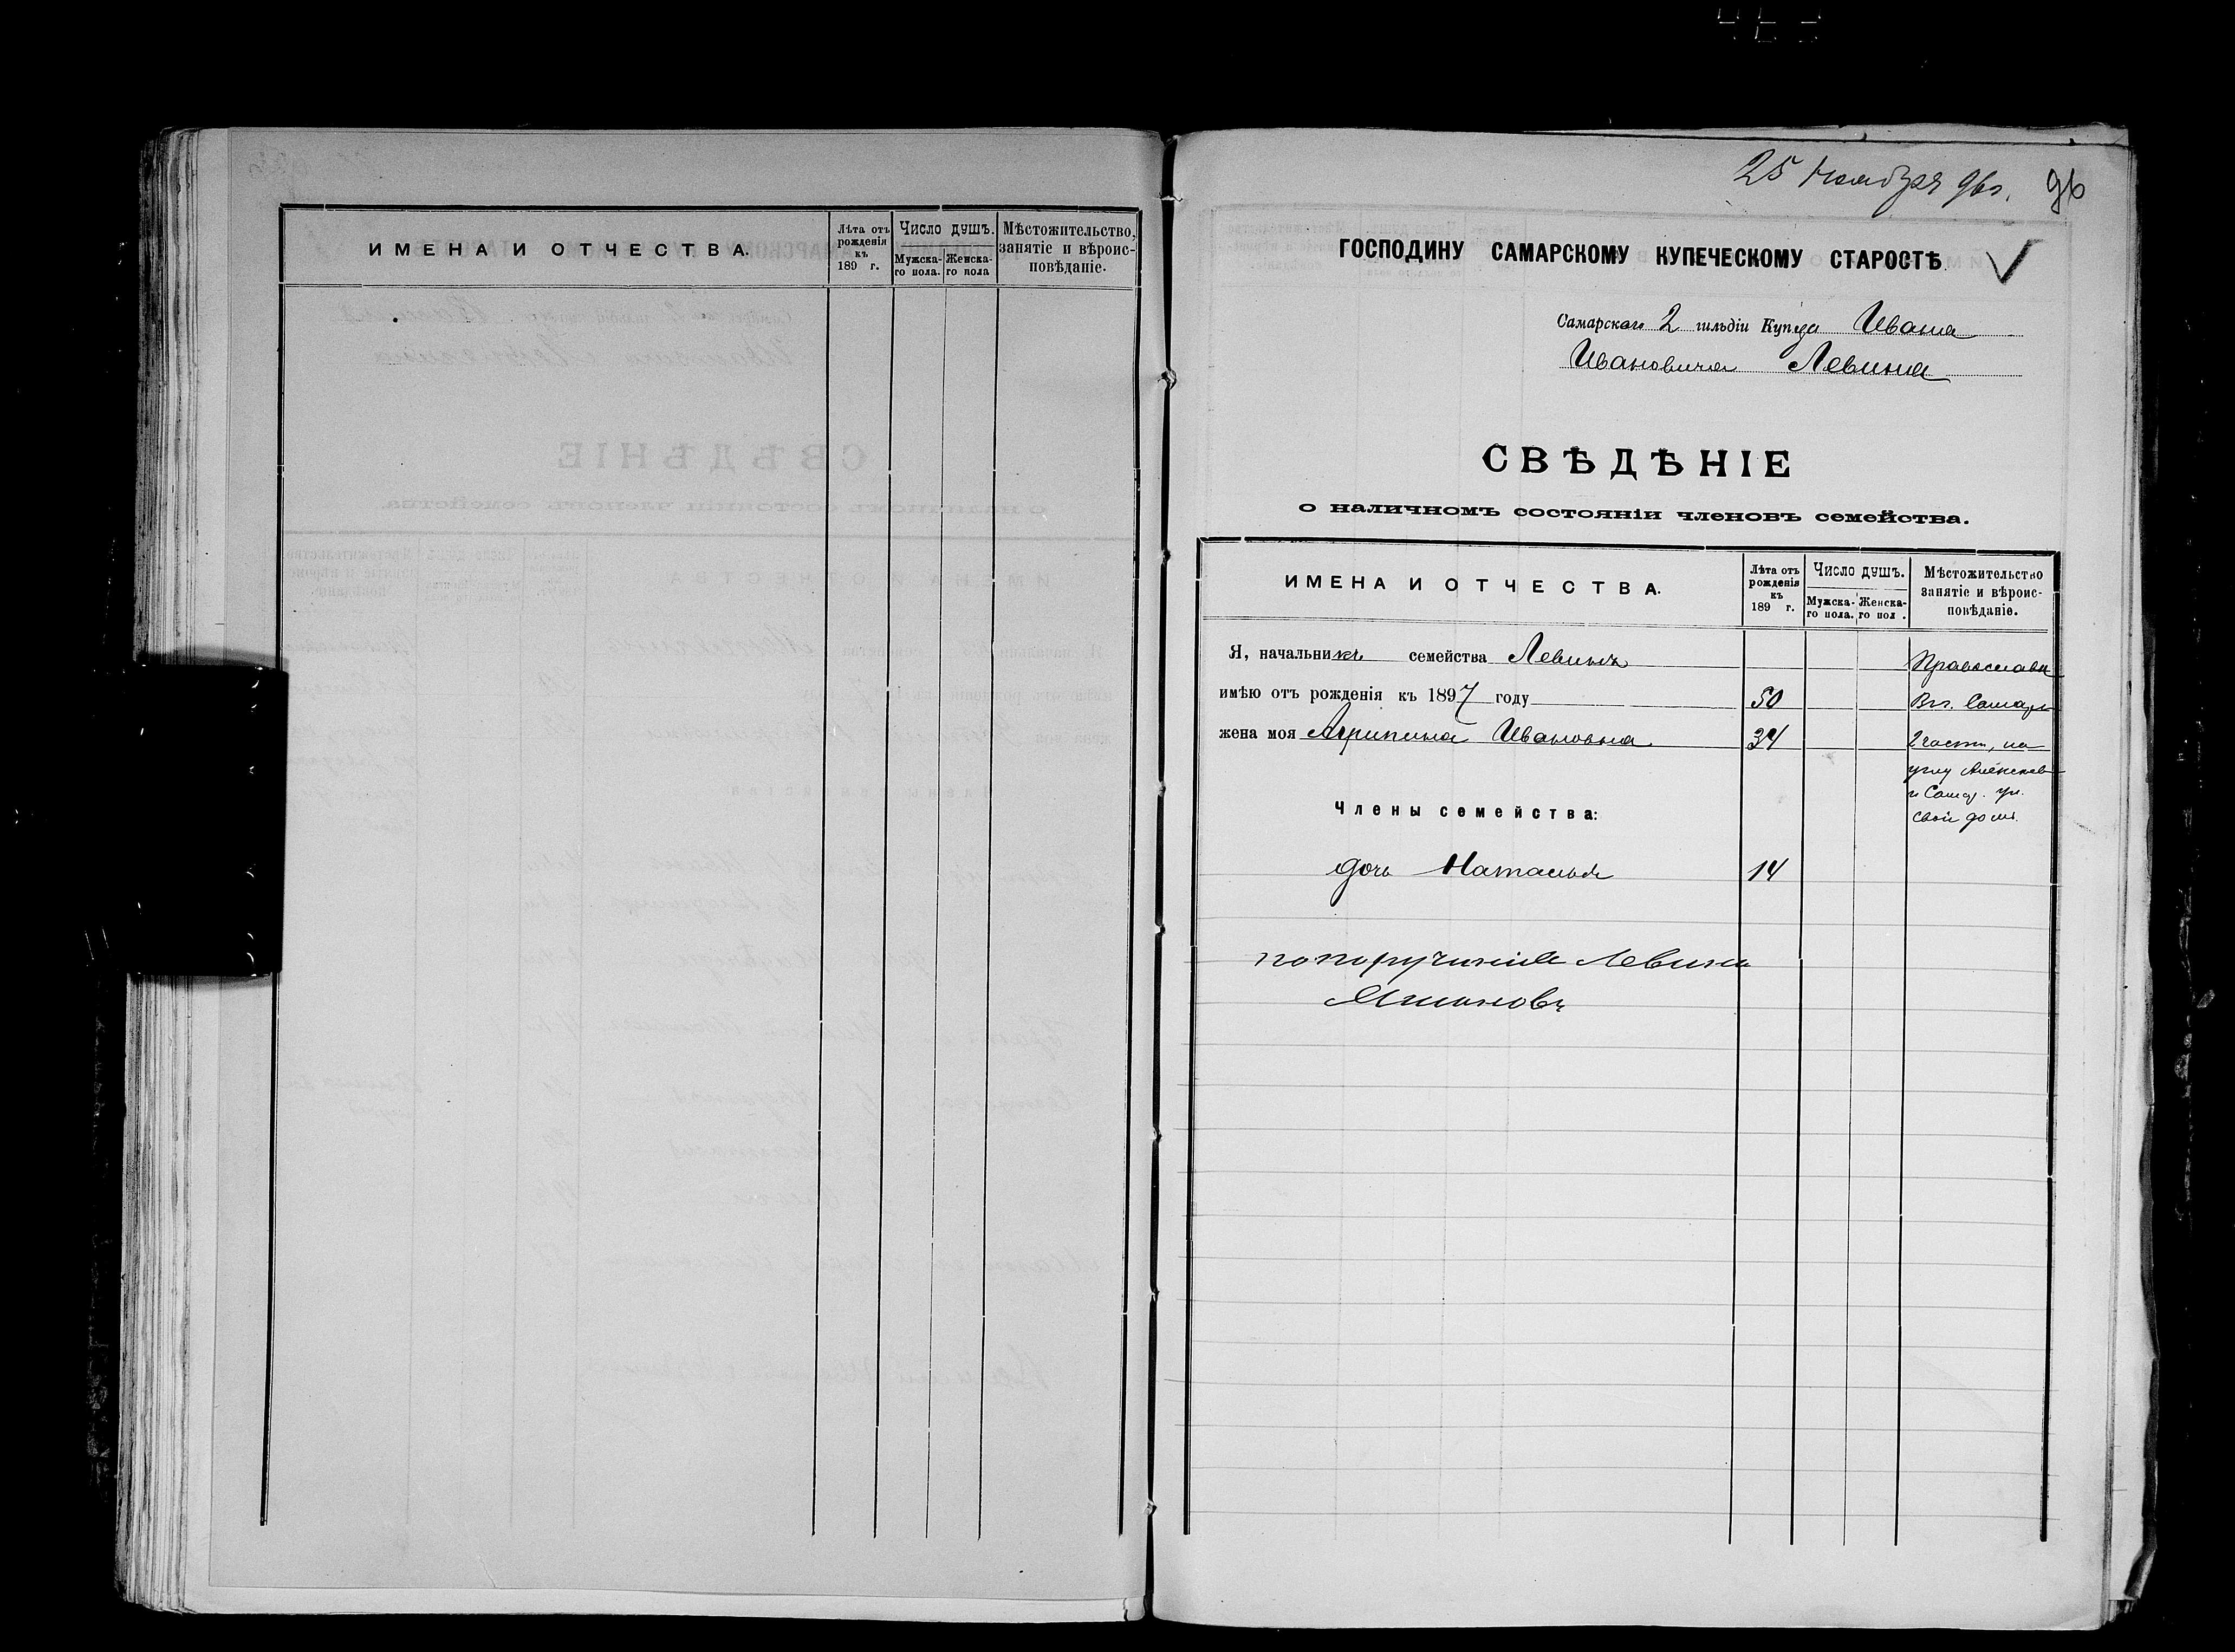 ИМЕНА И ОТЧЕСТВА.
Лѣта отъ рожденія къ 189 г.
Число душъ.
Мужска-го пола.
Женска-го пола
Мѣстожительство, занятіе и вѣроис-повѣданіе.
25 Ноября 96 г. 96
ГОСПОДИНУ САМАРСКОМУ КУПЕЧЕСКОМУ СТАРОСТѢ.
Самарскаго 2 гильдіи Купца Ивана
Ивановича Левина
СВѢДѢНІЕ
о наличномъ состояніи членовъ семейства.
ИМЕНА И ОТЧЕСТВА.
Лѣта отъ рожденія къ 189 г.
Число душъ.
Мужска-го пола.
Женска-го пол .
Мѣстожительство занятіе и вѣроис-повѣданіе.
Я, начальникъ семейства Левинъ Православн
имѣю отъ рожденія къ 1897 году 50 Въ г. Самарѣ
жена моя Агрипина Ивановна 34 2 части, на
углу Алексѣев
и Самар. ул.
свой домъ.
Члены семейства:
дочь Наталья 14
по порученію Левина